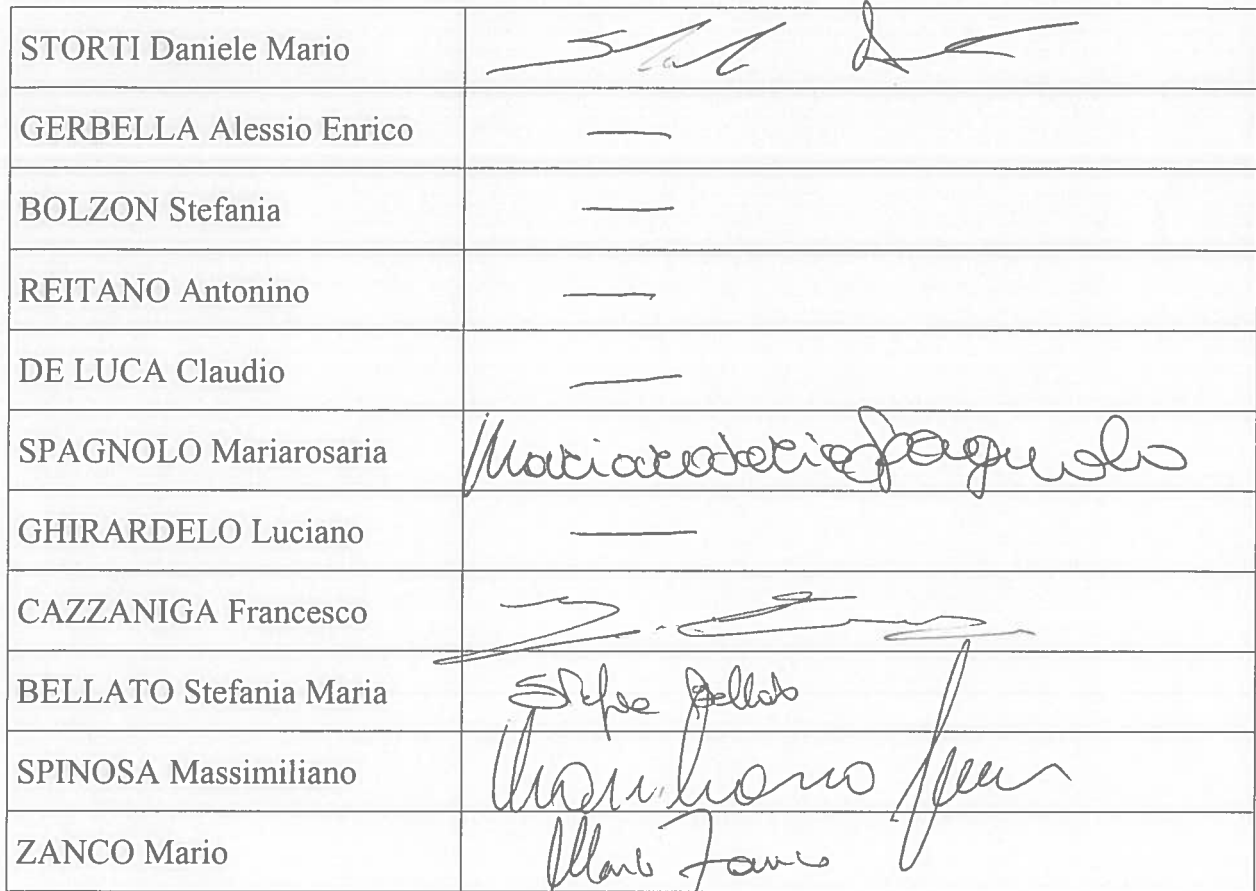 STORTI Daniele Mario
GERBELLA Alessio Enrico —
BOLZON Stefania —
REITANO Antonino —
DE LUCA Claudio —
SPAGNOLO Mariarosaria Mariarosaria Spagnolo
GHIRARDELO Luciano —
CAZZANIGA Francesco
BELLATO Stefania Maria Bellato
SPINOSA Massimiliano
ZANCO Mario Mario Zanco